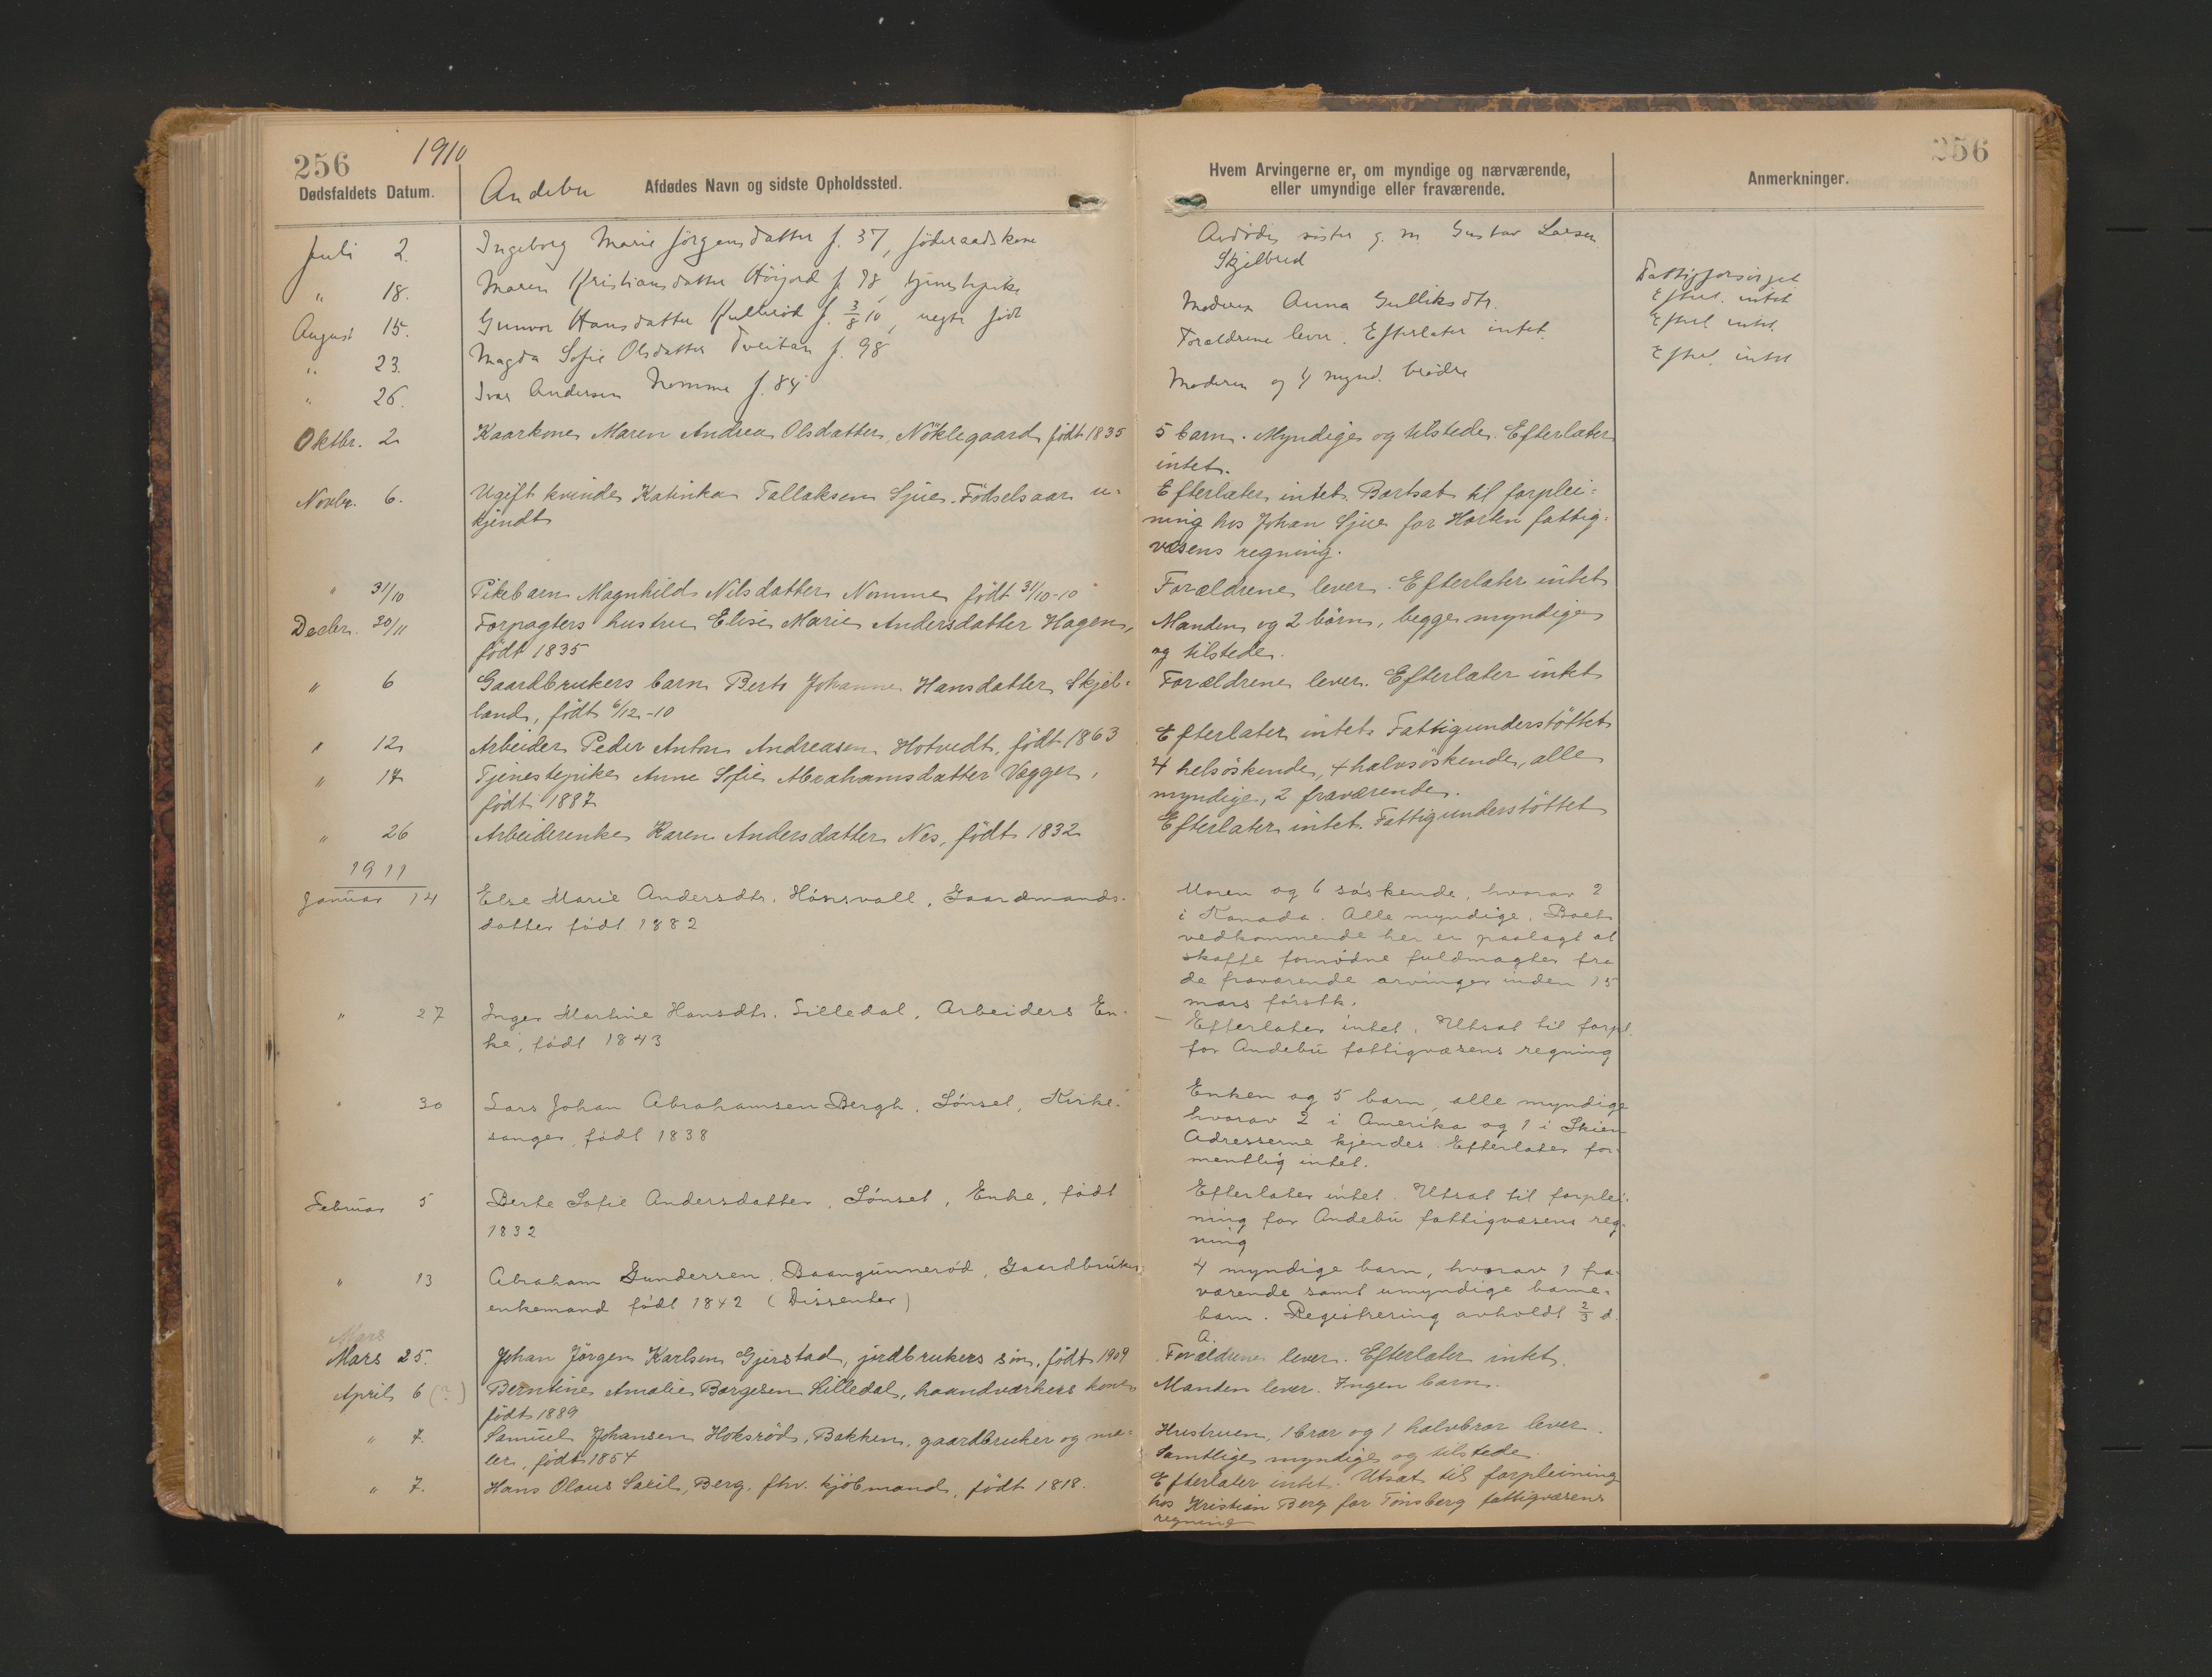 256 1910
Dødsfaldets Datum.
Andebu Afdødes Navn og sidste Opholdssted.
Juli 2. Ingeborg Marie Jörgensdatter f. 37, föderaadskone
" 18. Maren Kristiansdatter Höijord f. 98, tjenestepike
August 15. Gunvor Hansdatter Kulleröd f. 3/8 10, uegte födt
" 23. Magda Sofie Olsdatter Tveitan f. 98
" 26. Ivar Andersen Nomme f. 84
Oktbr. 2 Kaarkone Maren Andrea Olsdatter, Nöklegaard födt 1835
Novbr. 6. Ugift kvinde Katinka Tallaksen Sjue. Födselsaar u=
kjendt
" 31/10 Pikebarn Magnhild Nilsdatter Nomme födt 31/10-10
Decbr. 30/11 Forpagters hustru Elise Marie Andersdatter Hagen,
födt 1835
" 6 Gaardbrukers barn Berte Johanne Hansdatter Skjel=
land, födt 6/12-10
" 12 Arbeider Peder Anton Andreasen Hotvedt, födt 1863
" 17 Tjenestepike Anne Sofie Abrahamsdatter Vegger,
födt 1887
" 26 Arbeiderenke Karen Andersdatter Nes, födt 1832
1911
Januar 14 Else Marie Andersdtr. Hönsvall, Gaardmands-
datter födt 1882
" 27 Inger Martine Hansdtr. Lilledal, Arbeiders En-
ke, födt 1843
" 30 Lars Johan Abrahamsen Bergh, Lönsel, Kirke-
sanger, födt 1838
Februar 5 Berte Sofie Andersdatter, Lönsel, Enke, födt
1832
" 13 Abraham Gundersen, Baangunneröd, Gaardbruker
enkemand födt 1842 (Dissenter)
Mars
Mars 25. Johan Jörgen Karlsen Gjerstad, jordbrukers sön, födt 1909
April 6 (?) Berntine Amalie Borgesen Lilledal, haandverkers kone
födt 1889
" 7. Samuel Johansen Hoksröd, Bakken, gaardbruker og ma=
ler, födt 1854
" 7. Hans Olaus Berg, fhv. kjöbmand, födt 1818.
256
Hvem Arvingerne er, om myndige og nærværende,
eller umyndige eller fraværende.
Anmerkninger.
Avdödes söster g. m. Gustav Larsen
Skjelbred
Fattigforsörget
Moderen Anna Gulliksdtr. Efterl. intet
Foreldrene lever. Efterlater intet. Efterl intet
Moderen og 4 mynd. brödre Efterl. intet
5 barn. Myndige og tilstede. Efterlater
intet.
Efterlater intet. Bortsat til forplei=
ning hos Johan Sjue for Horten fattig=
væsens regning.
Forældrene lever. Efterlater intet
Manden og 2 börn, begge myndige
og tilstede.
Forældrene lever. Efterlater intet
Efterlater intet. Fattigunderstöttet
4 helsöskende, 4 halvsöskende, alle
myndige, 2 fraværende.
Efterlater intet. Fattigunderstöttet
Moren og 6 söskende, hvorav 2
i Kanada. Alle myndige. Boet
vedkommende her er paalagt at
skaffe fornödne fuldmagter fra
de fraværende arvinger inden 15
mars förstk.
— Efterlater intet. Utsat til forpl.
for Andebu fattigvæsens regning
Enken og 5 barn, alle myndige
hvorav 2 i Amerika og 1 i Skien
Adresserne kjendes. Efterlater for-
mentlig intet.
Efterlater intet. Utsat til forplei-
ning for Andebu fattigvæsens reg-
ning
4 myndige barn, hvorav 1 fra-
værende samt umyndige barne-
barn. Registrering avholdt 2/3 d.
A.
Forældrene lever. Efterlater intet.
Manden lever. Ingen barn.
Hustruen, 1 bror og 1 halvbror lever.
Samtlige myndige og tilstede.
Efterlater intet. Utsat til forpleining
hos Kristian Berg for Tönsberg fattigvæsens
regning